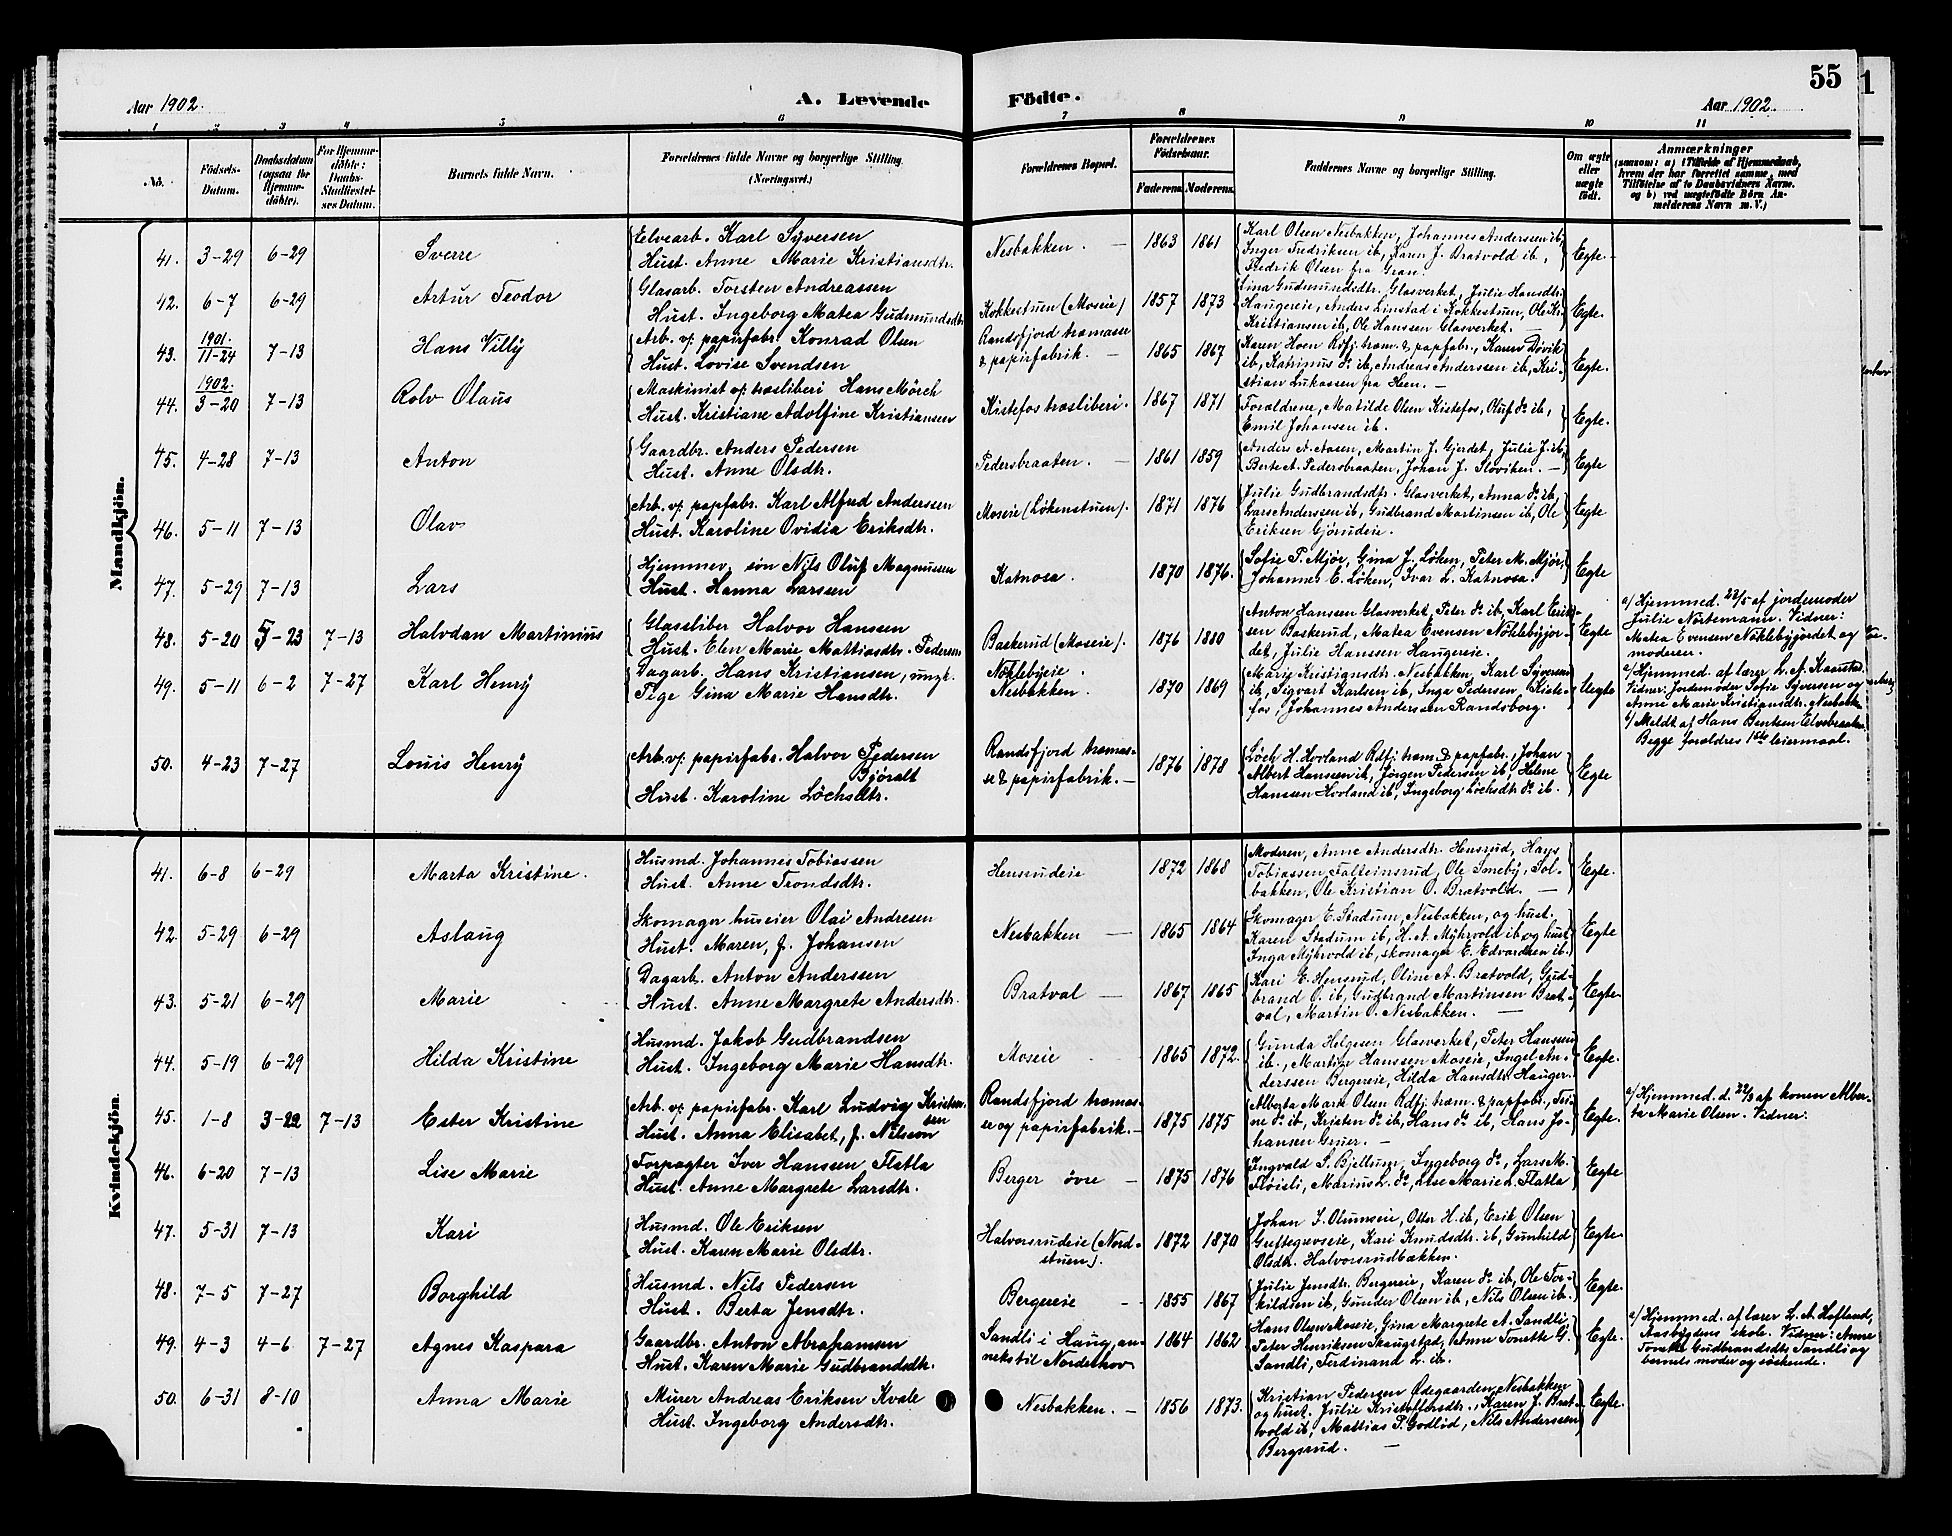 55
Aar 1902.
A. Levende
Födte.
Aar 1902.
1 2 3 4 5 6 7 8 9 10 11
No.
Födsels-
Datum.
Daabsdatum
(ogsaa for
Hjemme-
döbte).
For Hjemme-
döbte:
Daabs-
Stadfæstel-
ses Datum.
Barnets fulde Navn.
Forældrenes fulde Navne og borgerlige Stilling.
(Næringsvei.)
Forældrenes Bopæl.
Forældrenes
Födselsaar.
Faderens.
Moderens.
Faddernes Navne og borgerlige Stilling.
Om ægte
eller
uægte
födt.
Anmærkninger
(saasom: a) i Tilfælde af Hjemmedaab,
hvem der har forrettet samme, med
Tilföielse af to Daabsvidners Navne.
og b) ved uægtefödte Börn An-
melderens Navn m. V.)
Mandkjön.
41. 3-29 6-29 Sverre
Elvearb. Karl Syversen
Hust. Anne Marie Kristiansdtr.
Nesbakken. 1863 1861
Karl Olsen Nesbakken, Johannes Andersen ib,
Inger Fredriksen ib, Karen J. Bratvold ib,
Fredrik Olsen fra Gran.
Egte.
42. 6-7 6-29 Artur Teodor
Glasarb. Torsten Andreassen
Hust. Ingeborg Matea Gudmundsdtr
Kokkestuen (Moseie) 1857 1873
Lina Gudmundsdtr. Glasverket, Julie Hansdtr
Haugereie, Anders Linstad i Kokkestuen, Ole Kr.
Kristiansen ib, Ole Hanssen Glasverket.
Egte.
43. 1901. 11-24 7-13 Hans Villy
Arb. v/ papirfabr. Konrad Olsen
Hust. Lovise Svendsen
Randsfjord træmasse
& papirfabrik. 1865 1867
Karen Hoen Rdfj. træm. & papfabr., Karen Dövik
ib, Katrinus do ib, Andreas Anderssen ib, Kri-
stian Lukassen fra Heen.
Egte.
44. 1902. 3-20 7-13 Rolv Olaus
Maskinist v/ træsliberi Hans Mörch
Hust. Kristiane Adolfine Kristiansen
Kistefos træsliberi. 1867 1871
Forældrene, Matilde Olsen Kistefos, Oluf do ib,
Emil Johansen ib.
Egte.
45. 4-28 7-13 Anton
Gaardbr. Anders Pedersen
Hust. Anne Olsdtr.
Pedersbraaten. 1861 1859
Anders A. Aasen, Martin J. Gjerdet, Julie J. ib,
Berte A. Pedersbraaten, Johan J. Sloviken.
Egte
46. 5-11 7-13 Olav
Arb. v/ papfabr. Karl Alfred Anderssen
Hust. Karoline Ovidia Eriksdtr.
Moseie (Løkenstuen). 1871 1876
Julie Gudbrandsdtr. Glasverket, Anna do ib,
Lars Anderssen ib, Gudbrand Martinsen ib, Ole
Eriksen Gjørudeie.
Egte
47. 5-29 7-13 Lars
Hjemmev. søn Nils Oluf Magnussen
Hust. Hanna Larssen
Katnosa. 1870 1876.
Sofie P. Mjør, Gina J. Løken, Peter M. Mjør,
Johannes E. Løken, Ivar L. Katnosa.
Egte
48. 5-20 5-23 7-13 Halvdan Martinius
Glassliber Halvor Hanssen
Hust. Elen Marie Mattiasdtr. Pedersen
Baskerud (Moseie). 1876 1880
Anton Hanssen Glasverket, Peter do ib, Karl Erik-
sen Baskerud, Matea Evensen Nöklebygjor-
det, Julie Hanssen Haugereie.
Egte
a/ Hjemmed. 23/5 af jordemoder
Julie Nörstemann. Vidner:
Matea Evensen Nöklebygjordet og
moderen.
49. 5-11 6-2 7-27 Karl Henry
Dagarb. Hans Kristiansen, ungk.
Pige Gina Marie Hansdtr.
Nöklebyeie.
Nesbakken. 1870 1869
Marie Kristiansdtr. Nesbakken, Karl Syversen
ib, Sigvart Karlsen ib, Inga Pedersen Kiste-
fos, Johannes Anderssen Randsborg.
Uegte
a/ Hjemmed. af lærer L. A. Kaarstad.
Vidner: Jordemoder Sofie Syversen og
Anne Marie Kristiansdtr. Nesbakk.
b/ Meldt af Hans Bentsen Elvebraaten.
Begge forældres 1ste leiermaal.
50. 4-23 7-27 Louis Henry
Arb. v/ papirfabr. Halvor Pedersen
Björalt
Hust. Karoline Löchsdtr.
Randsfjord træmas-
se & papirfabrik. 1876 1878
Löch H. Hovland Rdfj. træm. & papfabr., Johan
Albert Hanssen ib, Jörgen Pedersen ib, Helene
Hanssen Hovland ib, Ingeborg Löchsdtr do ib.
Egte
Kvindekjön.
41. 6-8 6-29 Marta Kristine.
Husmd. Johannes Tobiassen
Hust. Anne Trondsdtr.
Hensrudeie 1872 1868
Moderen, Anne Andersdtr. Hensrud, Hans
Tobiassen Falteinsrud, Ole Smeby, Sol-
bakken, Ole Kristian O. Bratvold.
Egte.
42. 5-29 6-29 Aslaug
Skomager huseier Olai Andresen
Hust. Maren, f. Johansen
Nesbakken 1865 1864
Skomager E. Stadum, Nesbakken, og hust.
Karen Stadum ib, H. A. Myhrvold ib og hust.
Inga Myhrvold ib, skomager E. Edvardsen ib.
Egte
43. 5-21 6-29 Marie
Dagarb. Anton Anderssen
Hust. Anne Margrete Andersdtr.
Bratval 1867 1865
Kari E. Hensrud, Oline A. Bratvold, Gud-
brand O. ib, Gudbrand Martinsen Brat-
val, Martin O. Nesbakken.
Egte.
44. 5-19 6-29 Hilda Kristine
Husmd. Jakob Gudbrandsen
Hust. Ingeborg Marie Hansdtr.
Moseie 1865 1872.
Gunda Helgesen Glasverket, Peter Hanssen
ib., Martin Hanssen Moseie, Ingel An-
derssen Bergereie, Hilda Hansdtr. Hauger.
Egte.
45. 1-8 3-22 7-13 Ester Kristine
Arb. v/ papirfabr. Karl Ludvig Kristian-
sen
Hust. Anna Elisabet, f. Nilsson
Randsfjord træmas-
se og papirfabrik. 1875 1875
Alberta Marie Olsen Rdfj. træm. & papfabr., Tri-
ne do ib, Kristen do ib, Hans do ib, Hans Jo-
hansen Gruer.
Egte.
a/ Hjemmed. d. 22/3 af konen Alber-
ta Marie Olsen. Vidner:
46. 6-20 7-13 Lise Marie
Forpagter Iver Hanssen Flatla
Hust. Anne Margrete Larsdtr.
Berger övre 1875 1876
Ingvald S. Bjellum, Ingeborg do, Lars M.
Flöisli, Marius L. do, Lise Marie L. Flatla
Egte
47. 5-31 7-13 Kari
Husmd. Ole Eriksen
Hust. Karen Marie Olsdtr.
Halvorsrudeie (Nord-
stuen). 1872 1870
Johan J. Olumseie, Oster H. ib, Erik Olsen
Greftegrevseie, Kari Knudsdtr. ib, Gunhild
Olsdtr. Halvorsrudbakken.
Egte.
48. 7-5 7-27 Borghild
Husmd. Nils Pedersen
Hust. Berta Jensdtr.
Bergereie 1855 1867
Julie Jensdtr. Bergereie, Karen do ib, Ole Tor-
kildsen ib, Gunder Olsen ib, Nils Olsen ib.
Egte.
49. 4-3 4-6 7-27 Agnes Kaspara
Gaardbr. Anton Abrahamsen
Hust. Karen Marie Gudbrandsdtr.
Sandli i Haug, an-
neks til Norderhov 1864 1862
Hans Olsen Moseie, Gina Margrete A. Sandli,
Peter Henriksen Skaugstad, Anne Tonette G.
Sandli, Ferdinand L. ib.
Egte.
a/ Hjemmed. af lærer L. A. Hofland,
Aasbygdens skole. Vidner: Anne
Tonette Gudbrandsdtr. Sandli og
barnets moder og söskende.
50. 6-31 8-10 Anna Marie
Murer Andreas Eriksen Kvale
Hust. Ingeborg Andersdtr.
Nesbakken. 1856 1873.
Kristian Pedersen Ødegaarden, Nesbakken
og hust. Julie Kristoffersdtr., Karen J. Brat-
vold ib, Mattias P. Godlid, Nils Anderssen
Bergsrud.
Egte.